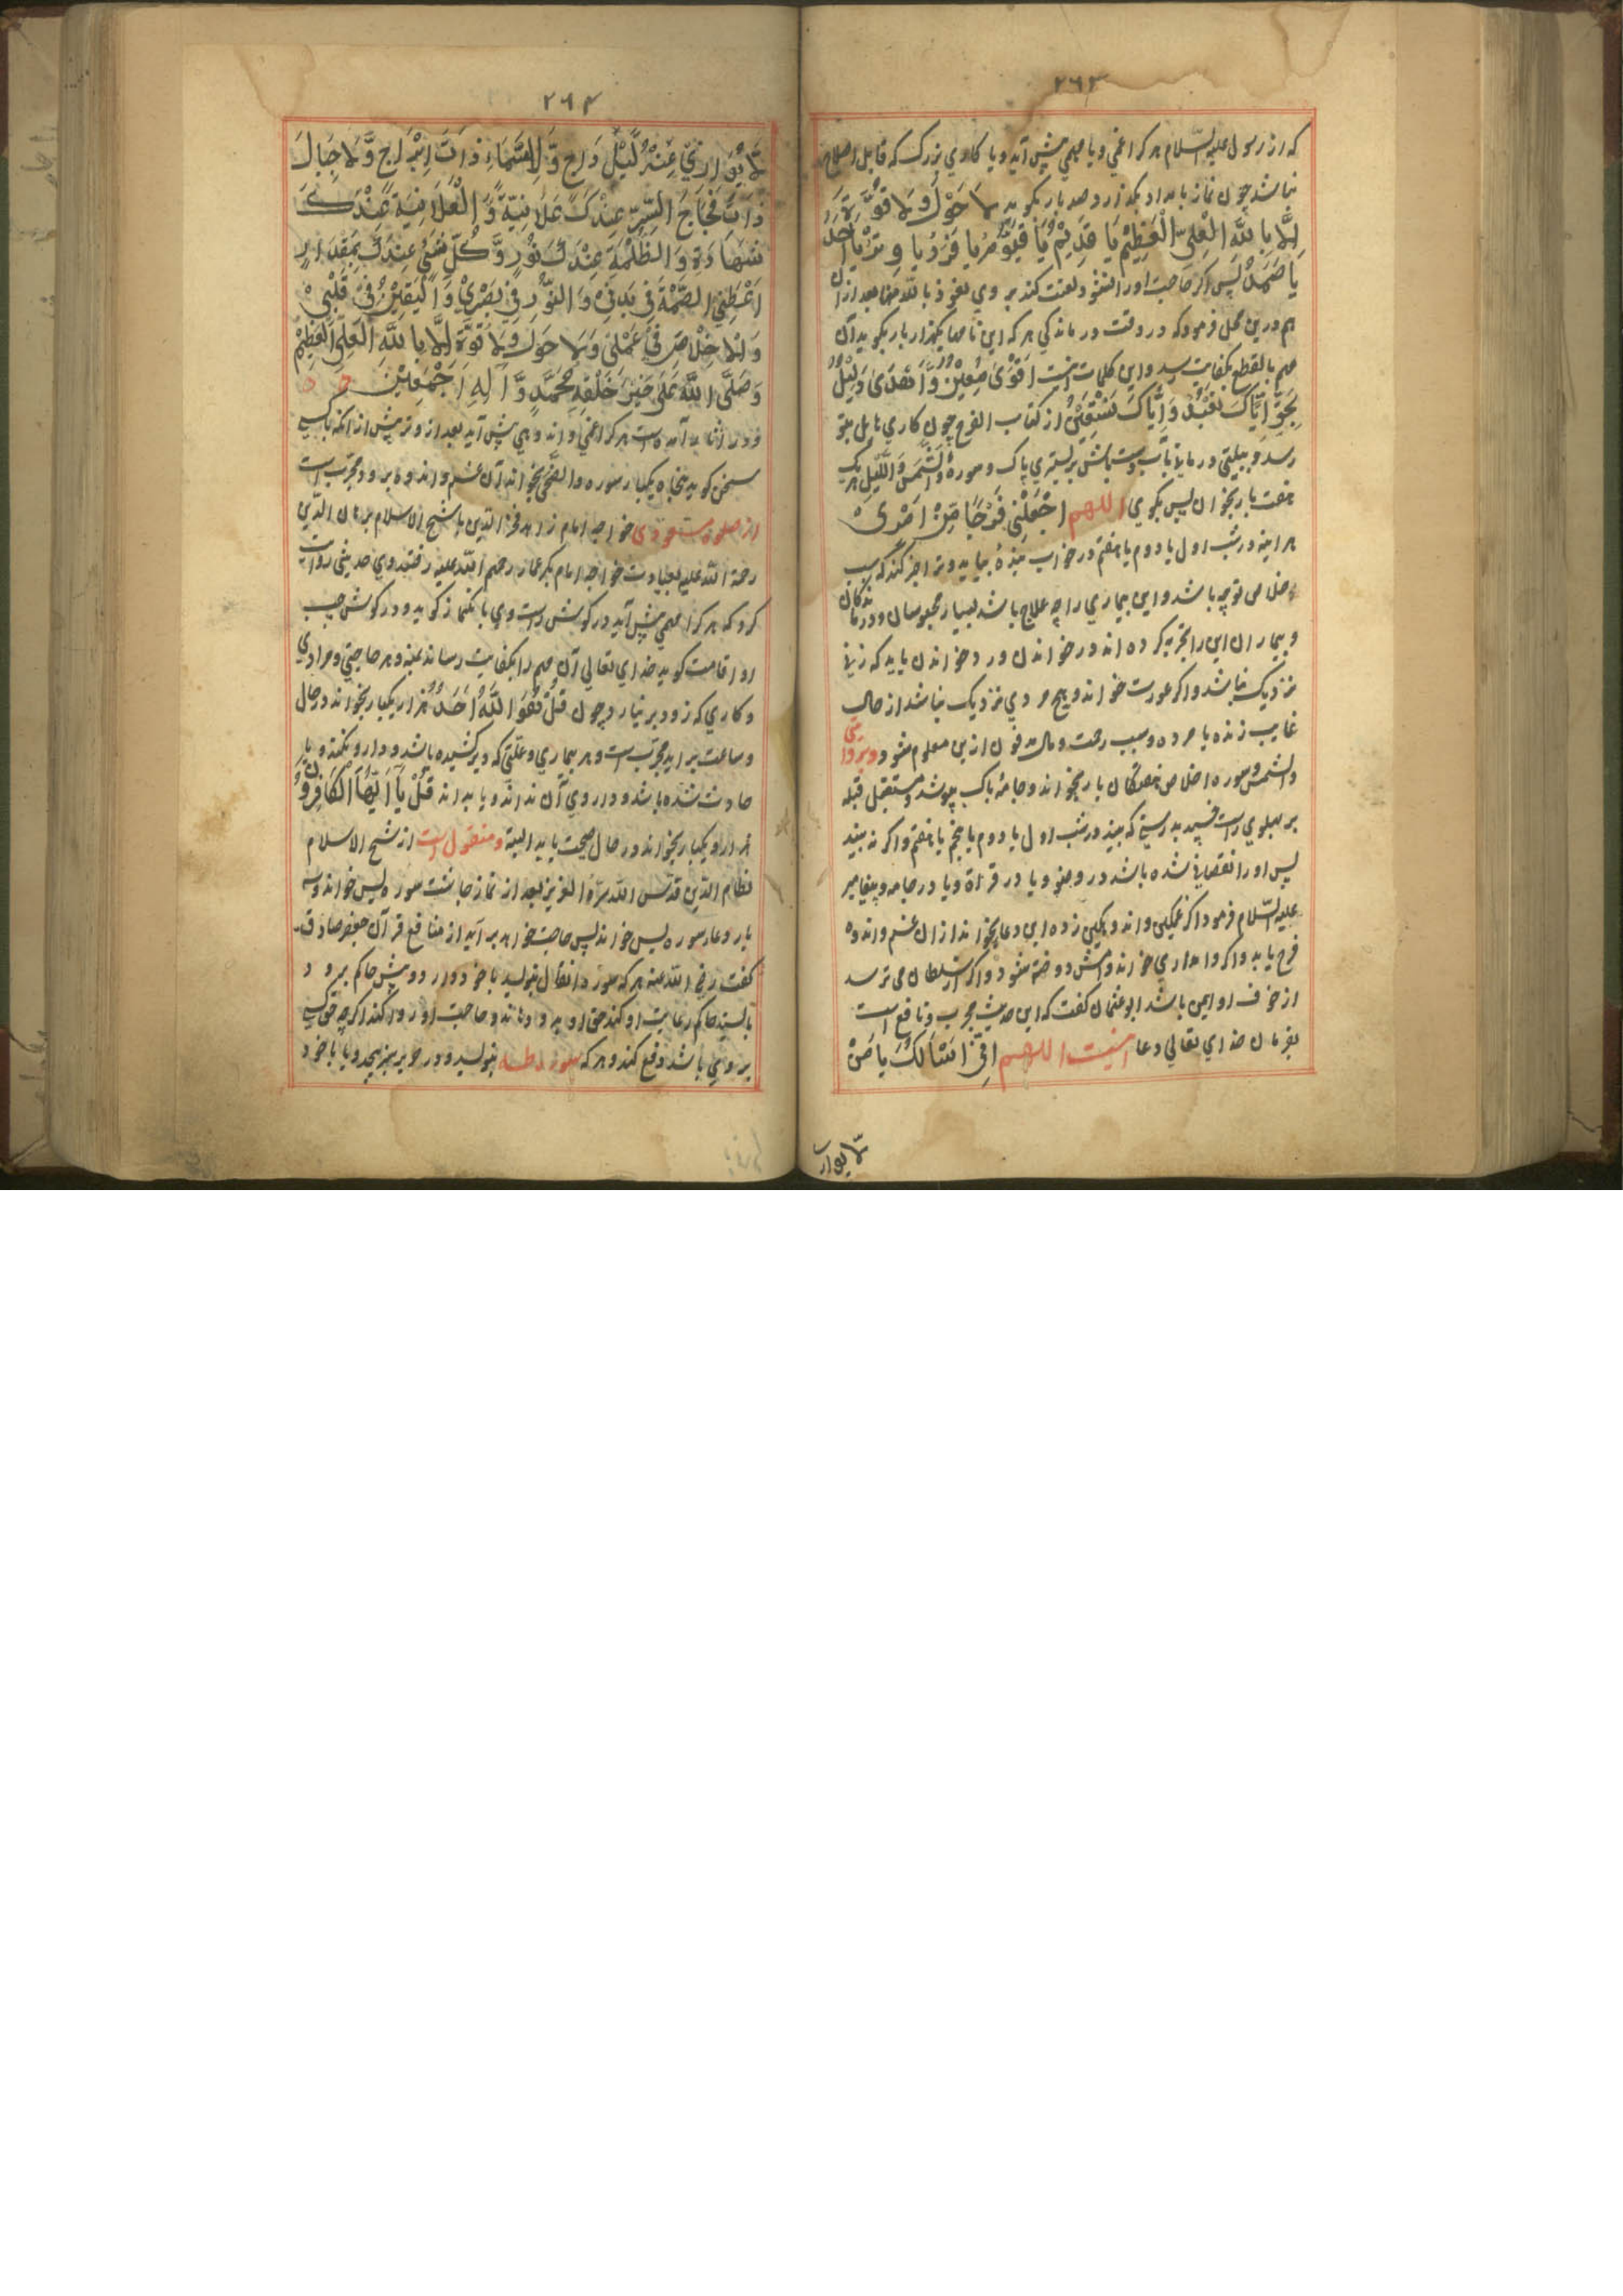 ٢٦٣
که از رسول علیه السّلام هر کرا غمی و یا مهمی پیش آید و یا کاری بزرک که قابل اصلاح
نباشد چون نماز بامداد بکذارد صد بار بکوید لَا حَوْلَ وَلَا قُوَّةَ
اِلَّا بِاللّٰهِ الْعَلِیِّ الْعَظِیْمِ یَا قَدِیْمُ یَا یَا فَرْدُ یَا وِتْرُ یَا اَحَدُ
یَا صَمَدُ پس اکر حاجت او روا نشود لعنت کند بر وی نعوذ بالله منها بعد ازان
هم درین محل فرمود که در وقت درماندکی هر که این نامها یکهزار بار بکوید آن
مهم بالقطع بکفایت رسد و این کلمات اینست اَقْوٰی مُعِیْنٌ وَّ اَهْدٰی دَلِیْلٌ
بِحَقِّ اِیَّاکَ نَعْبُدُ وَاِیَّاکَ نَسْتَعِیْنُ از کتاب الفرج چون کاری هایل بتو
رسد و ببلیتی درمانی بآب دست بباش بر بستری پاک و سورهٔ وَالشَّمْسِ وَاللَّیْلِ هر یک
هفت بار بخوان پس بکوی اللهم اجْعَلْنِی فَرَجًا مِّنْ اَمْرِیْ
هر اینه در شب اول یا دوم یا هفتم در خواب بیایدو ترا خبر کند که سبب
خلاص تو چه باشد و این بیماری را چه علاج باشد بسیار محبوسان و درماندکان
و بیماران این را تجربه کرده اند در خواندن ورد خواندن باید که زنی
نزدیک نباشد و اکر عورت خواند هیچ مردی نزدیک نباشد از حال
غایب زنده یا مرده و سبب رحمت و مال مدفون ازین معلوم شود
والشمس و سوره اخلاص هفتکان بار بخواند و جامهٔ پاک بپوشد و مستقبل قبله
بر پهلوی راست خسپد بدرستی که بیند در شب اول یا دوم یا پنجم یا هفتم و اکر نه بیند
پس او را نقصانی شده باشد در وضو و یا در قرآة و یا در جامه و پیغامبر
علیه السّلام فرمود اکر غمکین و اندوهکین زده این دعا بخواند ازان غم و اندوه
فرج یابد و اکر وامداری خواند وامش دوخته شود و اکر از سلطان می ترسد
از خوف او ایمن باشد ابوعثمان کفت که این حدیث مجرب و نافع است
بفرمان خدای تعالی دعا اینست اللهم اِنِّیْ اَسْئَلُکَ یَا مَنْ
لَّا یُوَارِ
٢٦٤
لَّا یُوَارِیْ عِنْهُ لَیْلٌ دَاجٍ وَّ لَا سَمَاءٌ ذَاتَ اِبْرَاجٍ وَّ لَا جِبَالَ
ذَاتَ فِجَاجَ السِّرِّ عِنْدَکَ عَلَانِیَةٌ وَّ الْعَلَانِیَةُ عِنْدَکَ
شَهَادَةٌ وَ الظُّلْمَةُ عِنْدَکَ نُوْرٌ وَّ کُلُّ شَیْءٍ عِنْدَکَ بِمِقْدَارٍ
اَعْطِنِی الصِّحَّةَ فِیْ بَدَنِیْ وَ النُّوْرَ فِیْ بَصَرِیْ وَ الْیَقِیْنَ فِیْ قَلْبِیْ
وَ الْاِخْلَاصَ فِیْ عَمَلِیْ وَ لَا حَوْلَ وَ لَا قُوَّةَ اِلَّا بِاللّٰهِ الْعَلِیِّ الْعَظِیْمِ
وَ صَلَّی اللّٰهُ عَلٰی خَیْرِ خَلْقِهِ مُحَمَّدٍ وَّ آلِهِ اَجْمَعِیْنَ
و در آثار آمده است هر کرا غمی و اندوهی پیش آید بعد از وتر پیش از انکه باکسی
سخن کوید پنجاه یکبار سوره والضحی بخواند آن غم و اندوه برود مجرّب است
از صلوة مسعودی خواجه امام زاهد فخر الدین با شیخ الاسلام برهان الدّین
رحمة الله علیه بعیادت خواجه امام بکر عمار رحمهم الله علیه رفتند وی حدیثی روایت
کرد که هر کرا مهمی پیش آید در کوش راست وی بانک نماز کوید و در کوش چپ
او اقامت کوید خدای تعالی آن مهم را بکفایت رساند بمنه و هر حاجتی و مرادی
و کاری که زود برنیارد چون قُلْ هُوَ اللّٰهُ اَحَدٌ هزار یکبار بخواند در حال
و ساعت براید مجرّب است و هر بیماری و علّتی که دیر کشیده باشد و دارو نکند و یا
حادث شده باشد و داروی آن نداند و یا بداند قُلْ یٰۤاَیُّهَا الْکَافِرُوْنَ
هزار و یکبار بخواند در حال صحت یابد البته و منقول است از شیخ الاسلام
نظام الدّین قدّس الله سرّهٗ العزیز بعد از نماز چاشت سوره یس خواند و سه
بار دعا سوره یس خواند پس حاجت خواهد برآید از منافع قرآن جعفر صادق
کفت رضی الله عنه هر که سوره انفال بنویسد با خود دارد و پیش حاکم برود
بایستد حاکم رعایت او کند حق او بدو دهاند و حاجت او روا کند اکرچه حق کسی
بر وی باشد دفع کند و هر که سوره طه بنویسد و در حریر سبز بپیچد و یا با خود